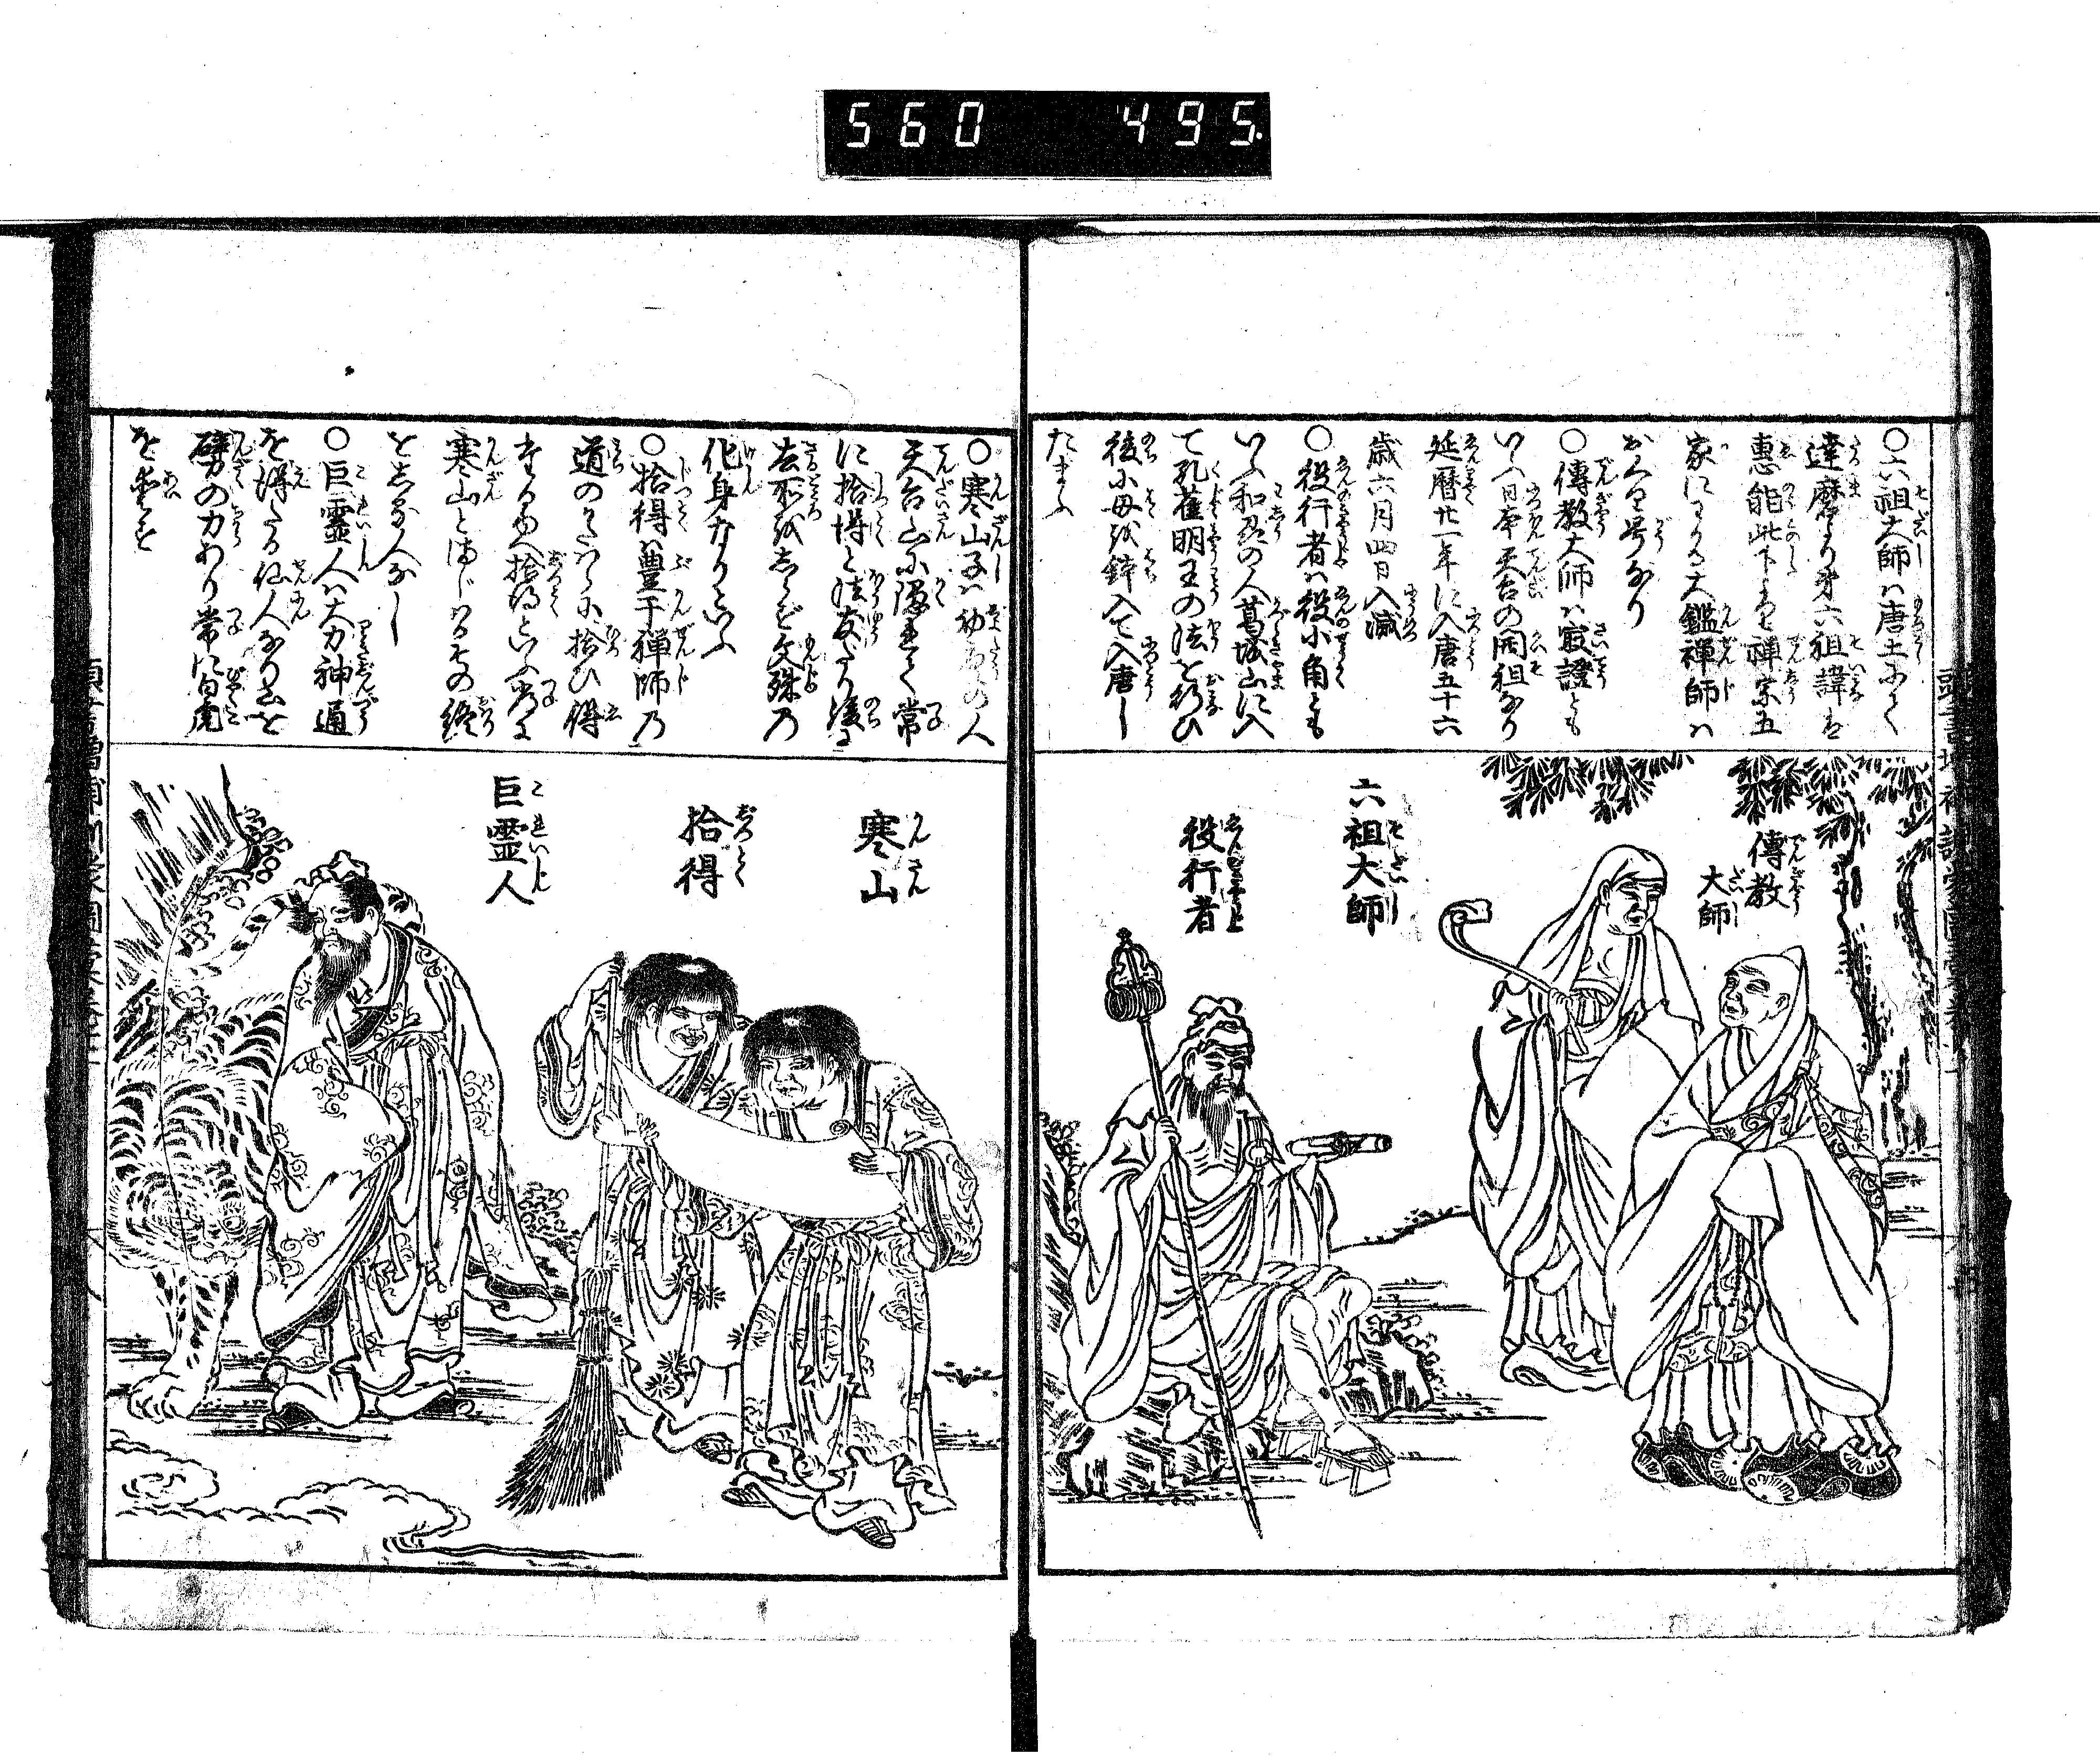 560 495.
〇六祖大師ハ唐土にて
達磨より第六祖諱は
惠能此下より禪宗五
家にわかる大鑑禪師ハ
おくり号なり
〇傳教大師ハ最證とも
いふ日本天台の開祖なり
延暦廿一年に入唐五十六
歳六月四日入滅
〇役行者ハ役小角とも
いふ和州の人葛城山に入
て孔雀明王の法を行ひ
後小母を鉢入て入唐し
たまふ
傳教
大師
六祖大師
役行者
〇寒山子ハ の人
天台山に隠れて常
に拾得と法友たり後に
去所をしらず文殊の
化身なりといふ
〇拾得ハ豊干禅師の
道のかたハらに拾ひ得
たるゆへ拾得といふ常に
寒山とまじハるその終
をしる人なし
〇巨靈人ハ大力神通
を得たる仙人なり山を
劈の力わり常に白虎
を愛す
寒山
拾得
巨霊人